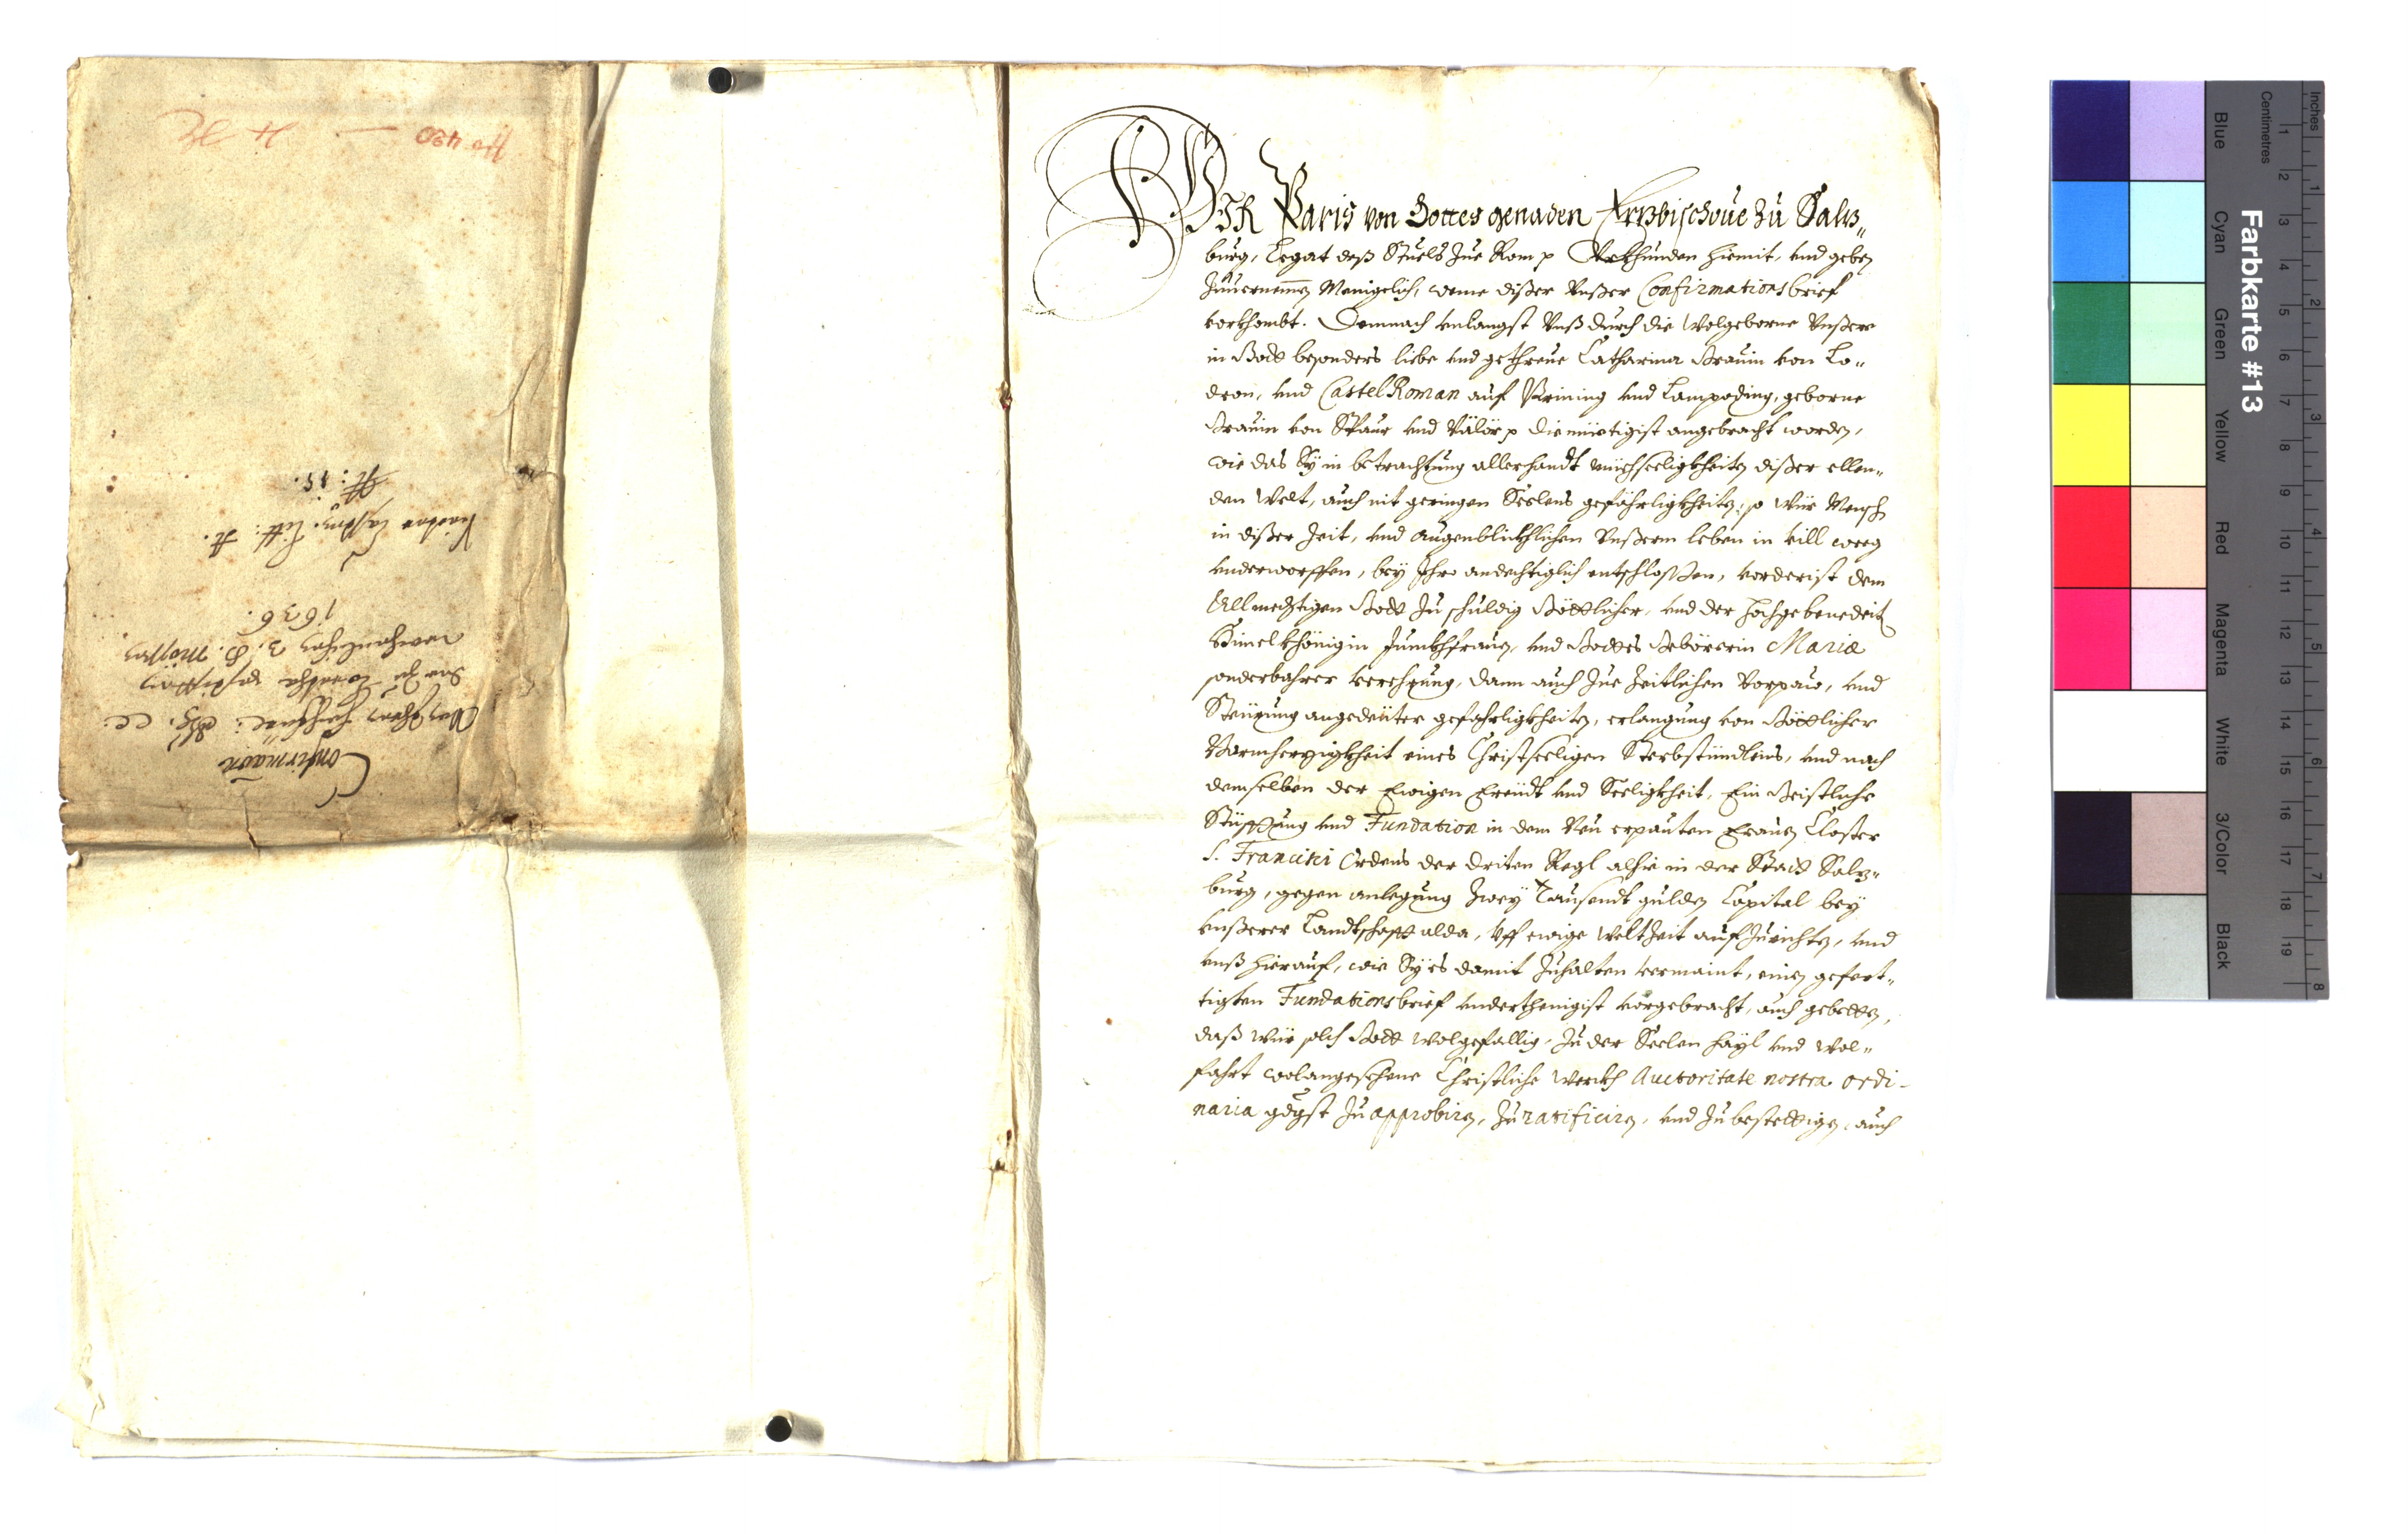 WIR Paris von Gottes genaden Ertzbischoue zu Saltz„
burg, Legat deß Stuels zue Rom p Vrkhunden hiemit, vnd geben
zuuernemen Menigelich, deme dißer Vnßer Confirmationsbrief
vorkhombt. Demnach vnlangst Vnß durch die Wolgeborne Vnßere
in Gott besonders liebe vnd gethreue Catharina Gräuin von Lo„
dron, vnd CastelRoman auf Pürning vnd Lampoding, geborne
Gräuin von Spaur vnd Välör p diemüetigist angebracht worden,
wie das Sÿ in betrachtung allerhandt müehseeligkheiten dißer ellen„
den Welt, auch nit geringen Seelens gefährligkheiten, so Wür Mensch
in dißer Zeit, vnd augenblikhlichen Vnßerm leben in vill weeg
vnderworffen, beÿ Ihro andechtiglich entschlossen, vorderist dem
Allmechtigen Gott zu schuldig Göttlicher, vnd der hochgebenedeit
Himelkhönigin Junkhfrauen, vnd Gottes Gebörerin Mariæ
sonderbahrer verehrung, dann auch zue Zeitlichen Vorpaw, vnd
Steürung angedeüter gefahrligkheiten, erlangung von Göttlicher
Barmherzigkheit eines Christseeligen Sterbstündleins, vnd nach
demselben der Ewigen Freüdt vnd Seeligkheit, Ein Geistliche
Stüfftung vnd Fundation in dem Neu erpauten Frauen Closter
S. Francisci Ordens der driten Regl alhie in der Statt Saltz„
burg, gegen anlegung Zweÿ Tausendt gulden Capital beÿ
vnßerer Landtschafft alda, vff ewige Weltzeit aufzurichten, vnd
vnß hierauf, wie Sÿ es damit zuhalten vermaint, einen gefert„
tigten Fundationsbrief vnderthenigist vorgebracht, auch gebetten,
daß Wür solch Gott wolgefällig, zu der Seelen hayl vnd Wol„
fahrt wolangesehene Christliche Werkh Auctoritate nostra ordi-
naria gdgst zu approbiren, zu ratificiren, vnd zubestettigen, auch
No 430 — H
Confirmaon
1636.
Litt: A.
№: 15.
Farbkarte #13
Blue Cyan Green Yellow Red Magenta White 3/Color Black
Centimetres 1 2 3 4 5 6 7 8 9 10 11 12 13 14 15 16 17 18 19
Inches 1 2 3 4 5 6 7 8